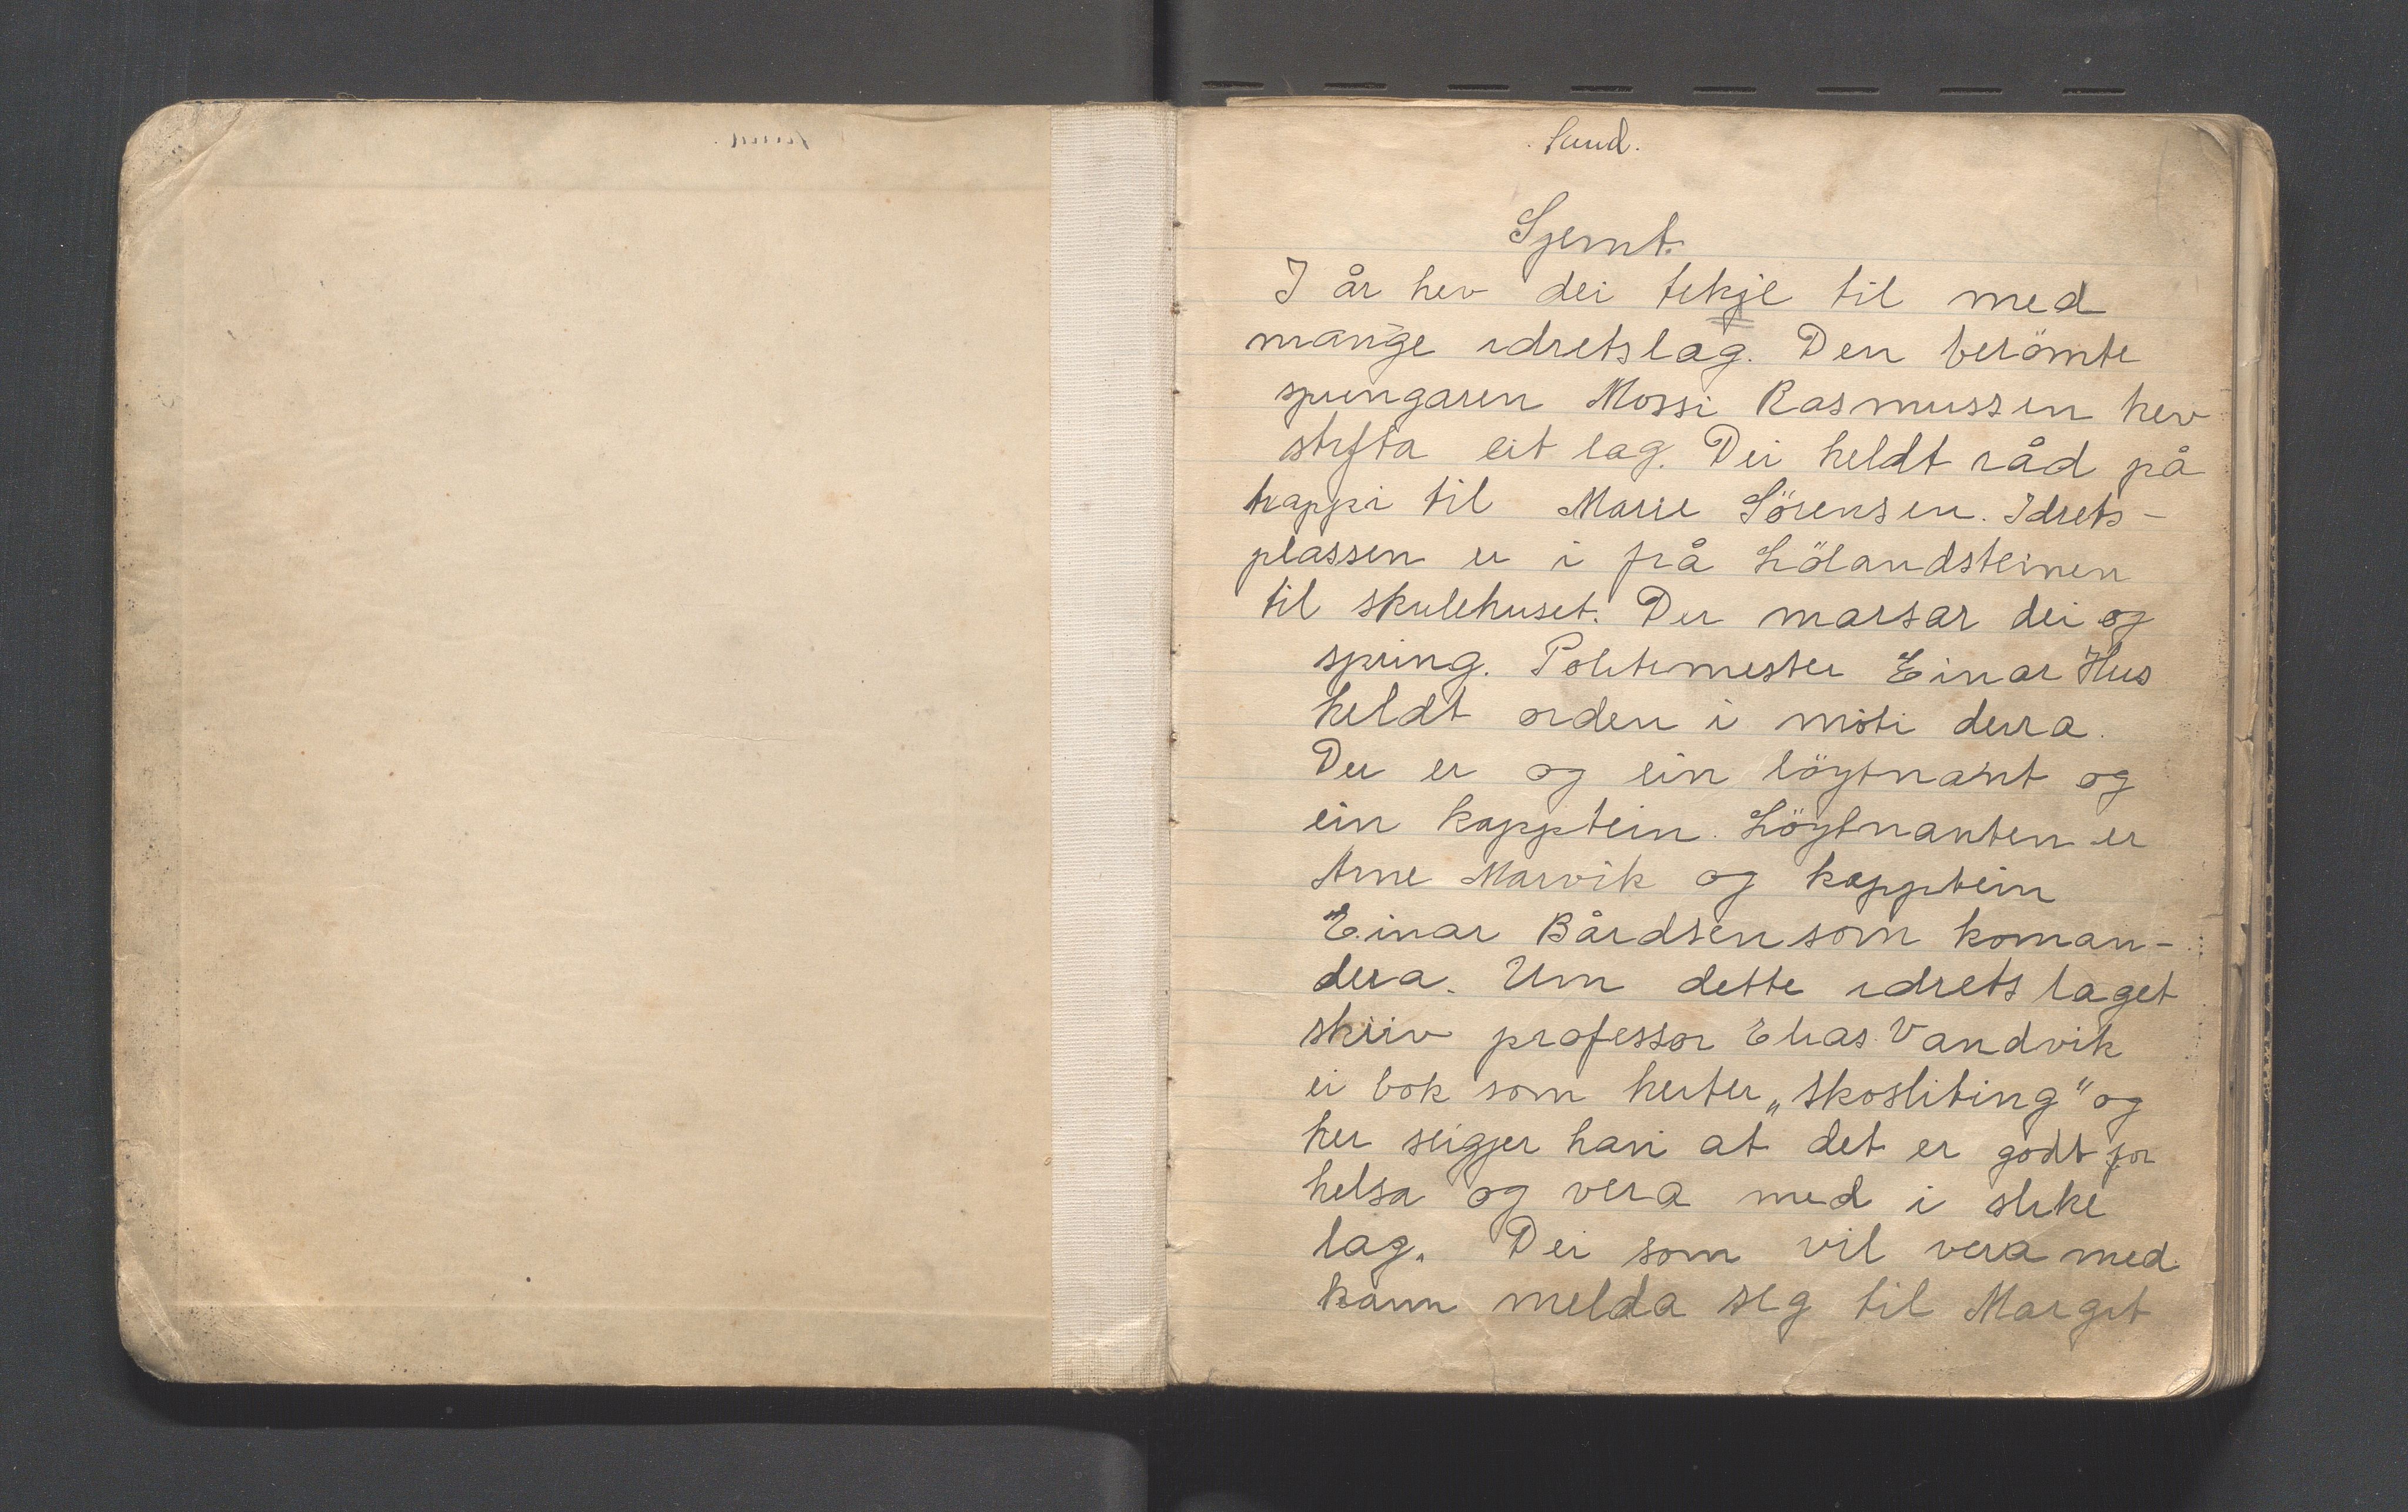 Sund.
Sjemt.
I år hev dei tekje til med
mange idretslag. Den berömte
sprengaren Mossi Rasmussen hev
stifta eit lag. Dei heldt råd på
trappi til Marie Sörensen. Idrets-
plassen er i frå Lölandsteinen
til skulehuset. Der marsar dei og
spring. Politimester Einar Hus
heldt orden i möti derra.
Der er og ein löytnant og
ein kapptein. Löytnanten er
Arne Marvik og kapptein
Einar Bårdsen som koman-
dera. Um dette idretslaget
skriv professor Elias Vandvik
ei bok som heiter „Skosliting" og
her seigjer han at det er godt for
helsa og vera med i slike
lag. Dei som vil vera med
kann melda seg til Margit